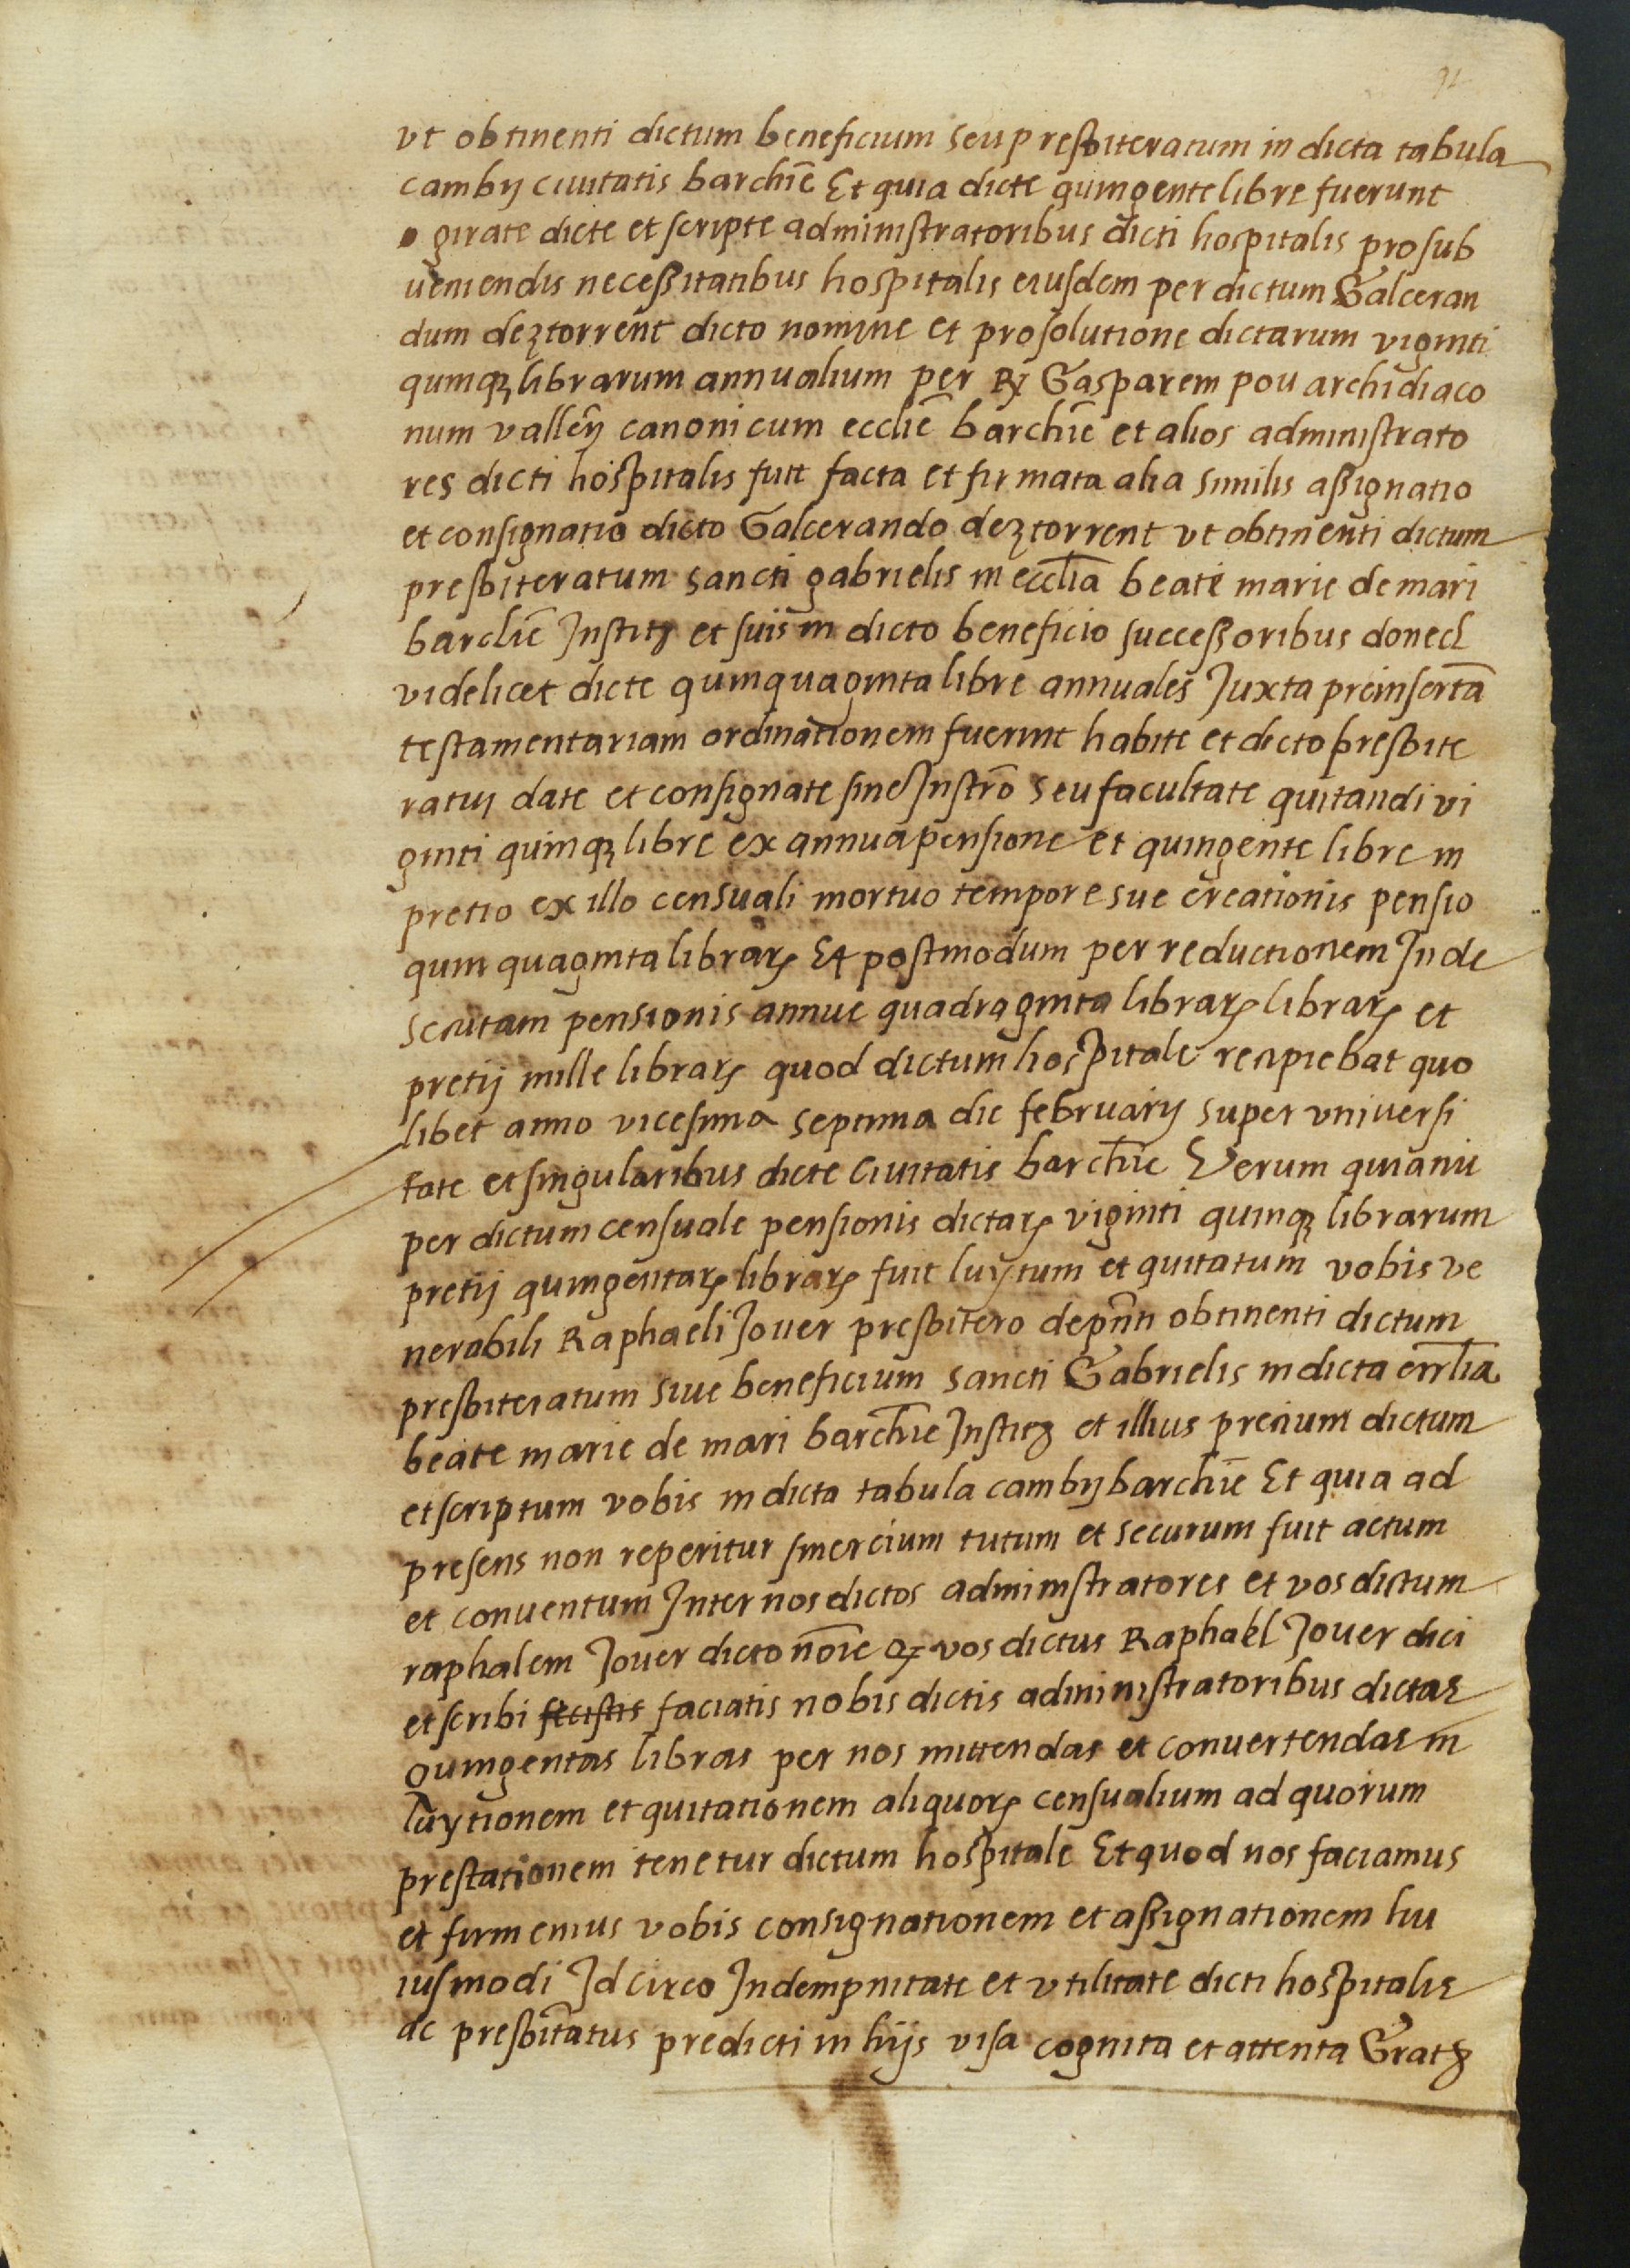 vt obtinenti dictum beneficium seu presbiteratum in dicta tabula
cambij ciuitatis barchīe Et quia dicte quingente libre fuerunt
girate dicte et scripte administratoribus dicti hospitalis pro sub
ueniendis necessitatibus hospitalis eiusdem per dictum Galceran
dum deztorrent dicto nomine et pro solutione dictarum viginti
quinqꝫ librarum annualium per Rx Gasparem pou archidiaco
num vallēn canonicum ecclīe barchīe et alios administrato
res dicti hospitalis fuit facta et firmata alia similis assignatio
et consignatio dicto Galcerando deztorrent vt obtinenti dictum
presbiteratum sancti gabrielis in ecclīa beate marie de mari
barchīe Institꝫ et suis in dicto beneficio successoribus donech
videlicet dicte quinquaginta libre annuales Juxta preinsertā
testamentariam ordinationem fuerint habite et dicto presbite
ratui date et consignate sine Instrō seu facultate quitandi vi
ginti quinqꝫ libre ex annua pensione et quingente libre in
pretio ex illo censuali mortuo tempore sue creationis pensio
quinquaginta librarꝫ Et postmodum per reductionem Inde
secutam pensionis annue quadraginta librarꝫ librarꝫ et
pretij mille librarꝫ quod dictum hospitale recipiebat quo
libet anno vicesima septima die februarij super vniuersi
tate et singularibus dicte ciuitatis barchīe Verum quia nū
per dictum censuale pensionis dictarꝫ viginti quinqꝫ librarum
pretij quingentarꝫ librarꝫ fuit luytum et quitatum vobis ve
nerabili Raphaeli Jouer presbitero de pn̄ti obtinenti dictum
presbiteratum siue beneficium sancti Gabrielis in dicta ecclīa
beate marie de mari barchīe Institꝫ et illius precium dictum
et scriptum vobis in dicta tabula cambij barchīe Et quia ad
presens non reperitur smercium tutum et securum fuit actum
et conuentum Inter nos dictos administratores et vos dictum
raphalem Jouer dicto nōie qꝫ vos dictus Raphael Jouer dici
et scribi fecistis faciatis nobis dictis administratoribus dictas
quingentas libras per nos mittendas et conuertendas in
luytionem et quitationem aliquorꝫ censualium ad quorum
prestationem tenetur dictum hospitale Et quod nos faciamus
et firmemus vobis consignationem et assignationem hu
iusmodi Id circo Indempnitate et vtilitate dicti hospitalis
ac presbīratus predicti in hijs visa cognita et attenta Gratꝫ